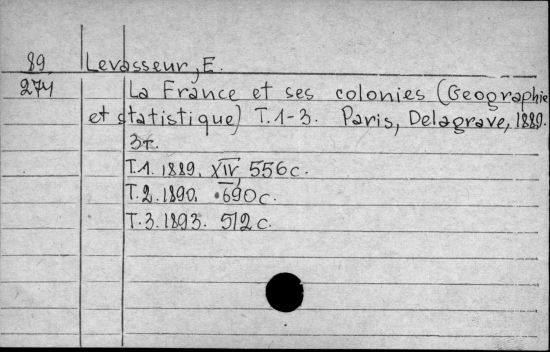 89 Levasseur, E.
274 La France et ses colonies (Geographie
et statistique) T.1-3. Paris, Delagrave, 1889.
3т.
T.1. 1889. XIV, 556 c.
T.2. 1890. 690 c.
T.3. 1893. 512 c.